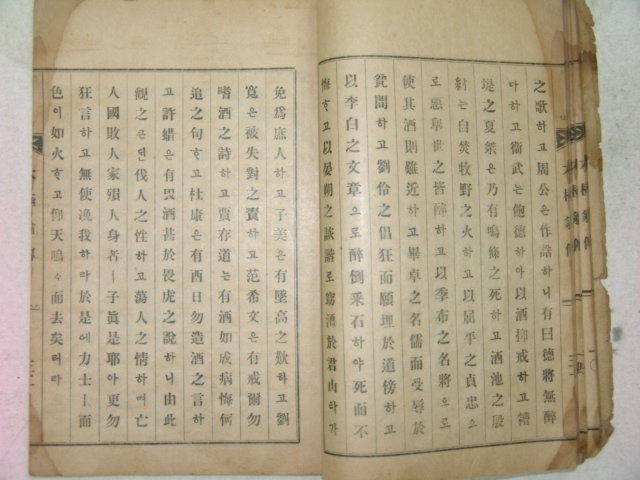 之歌하고周公은作誥하니有曰德將無醉
라하고衛武는飽德하야以酒抑戒하고糟
堤之夏桀은乃有鳴條之死하고酒池之殷
紂는自焚牧野之火하고以屈平之貞忠으
로惡擧世之皆醉하고以季布之名將으로
使其酒則難近하고畢卓之名儒而受辱於
甕間하고劉伶之倡狂而願埋於道傍하고
以李白之文章으로醉倒采石하야死而不
悔하고以晏朔之詼諧로竊酒於君山하다가
免爲庶人하고子美은有墜高之歎하고劉
寬은被失對之責하고范希文은有戒爾勿
嗜酒之詩하고賈存道는有酒如成病悔何
追之句하고杜康은有酉日勿造酒之言하
고許緖은有畏酒甚於畏虎之說하니由此
觀之큰던伐人之性하고蕩人之情하며亡
人國敗人家殞人身者ㅣ子眞是耶아更勿
狂言하고無使浼我하라於是에力士ㅣ面
色이如火하고仰天嗚々而去矣러라